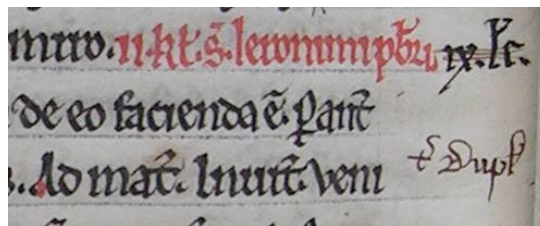 mirro. ii. kl. s. Ieronimi pbri. ix. lc.
de eo facienda ē. Pant̄
. Ad mat̄. Inuit̄. veni
t̄ Dupł